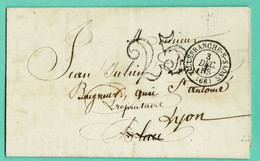 A Monsieur
Jean Julien
Baigneur, quai St Antoine
Propriétaire
Lyon
25
VILLEFRANCHE-S-SAONE
3
DEC.
(68)